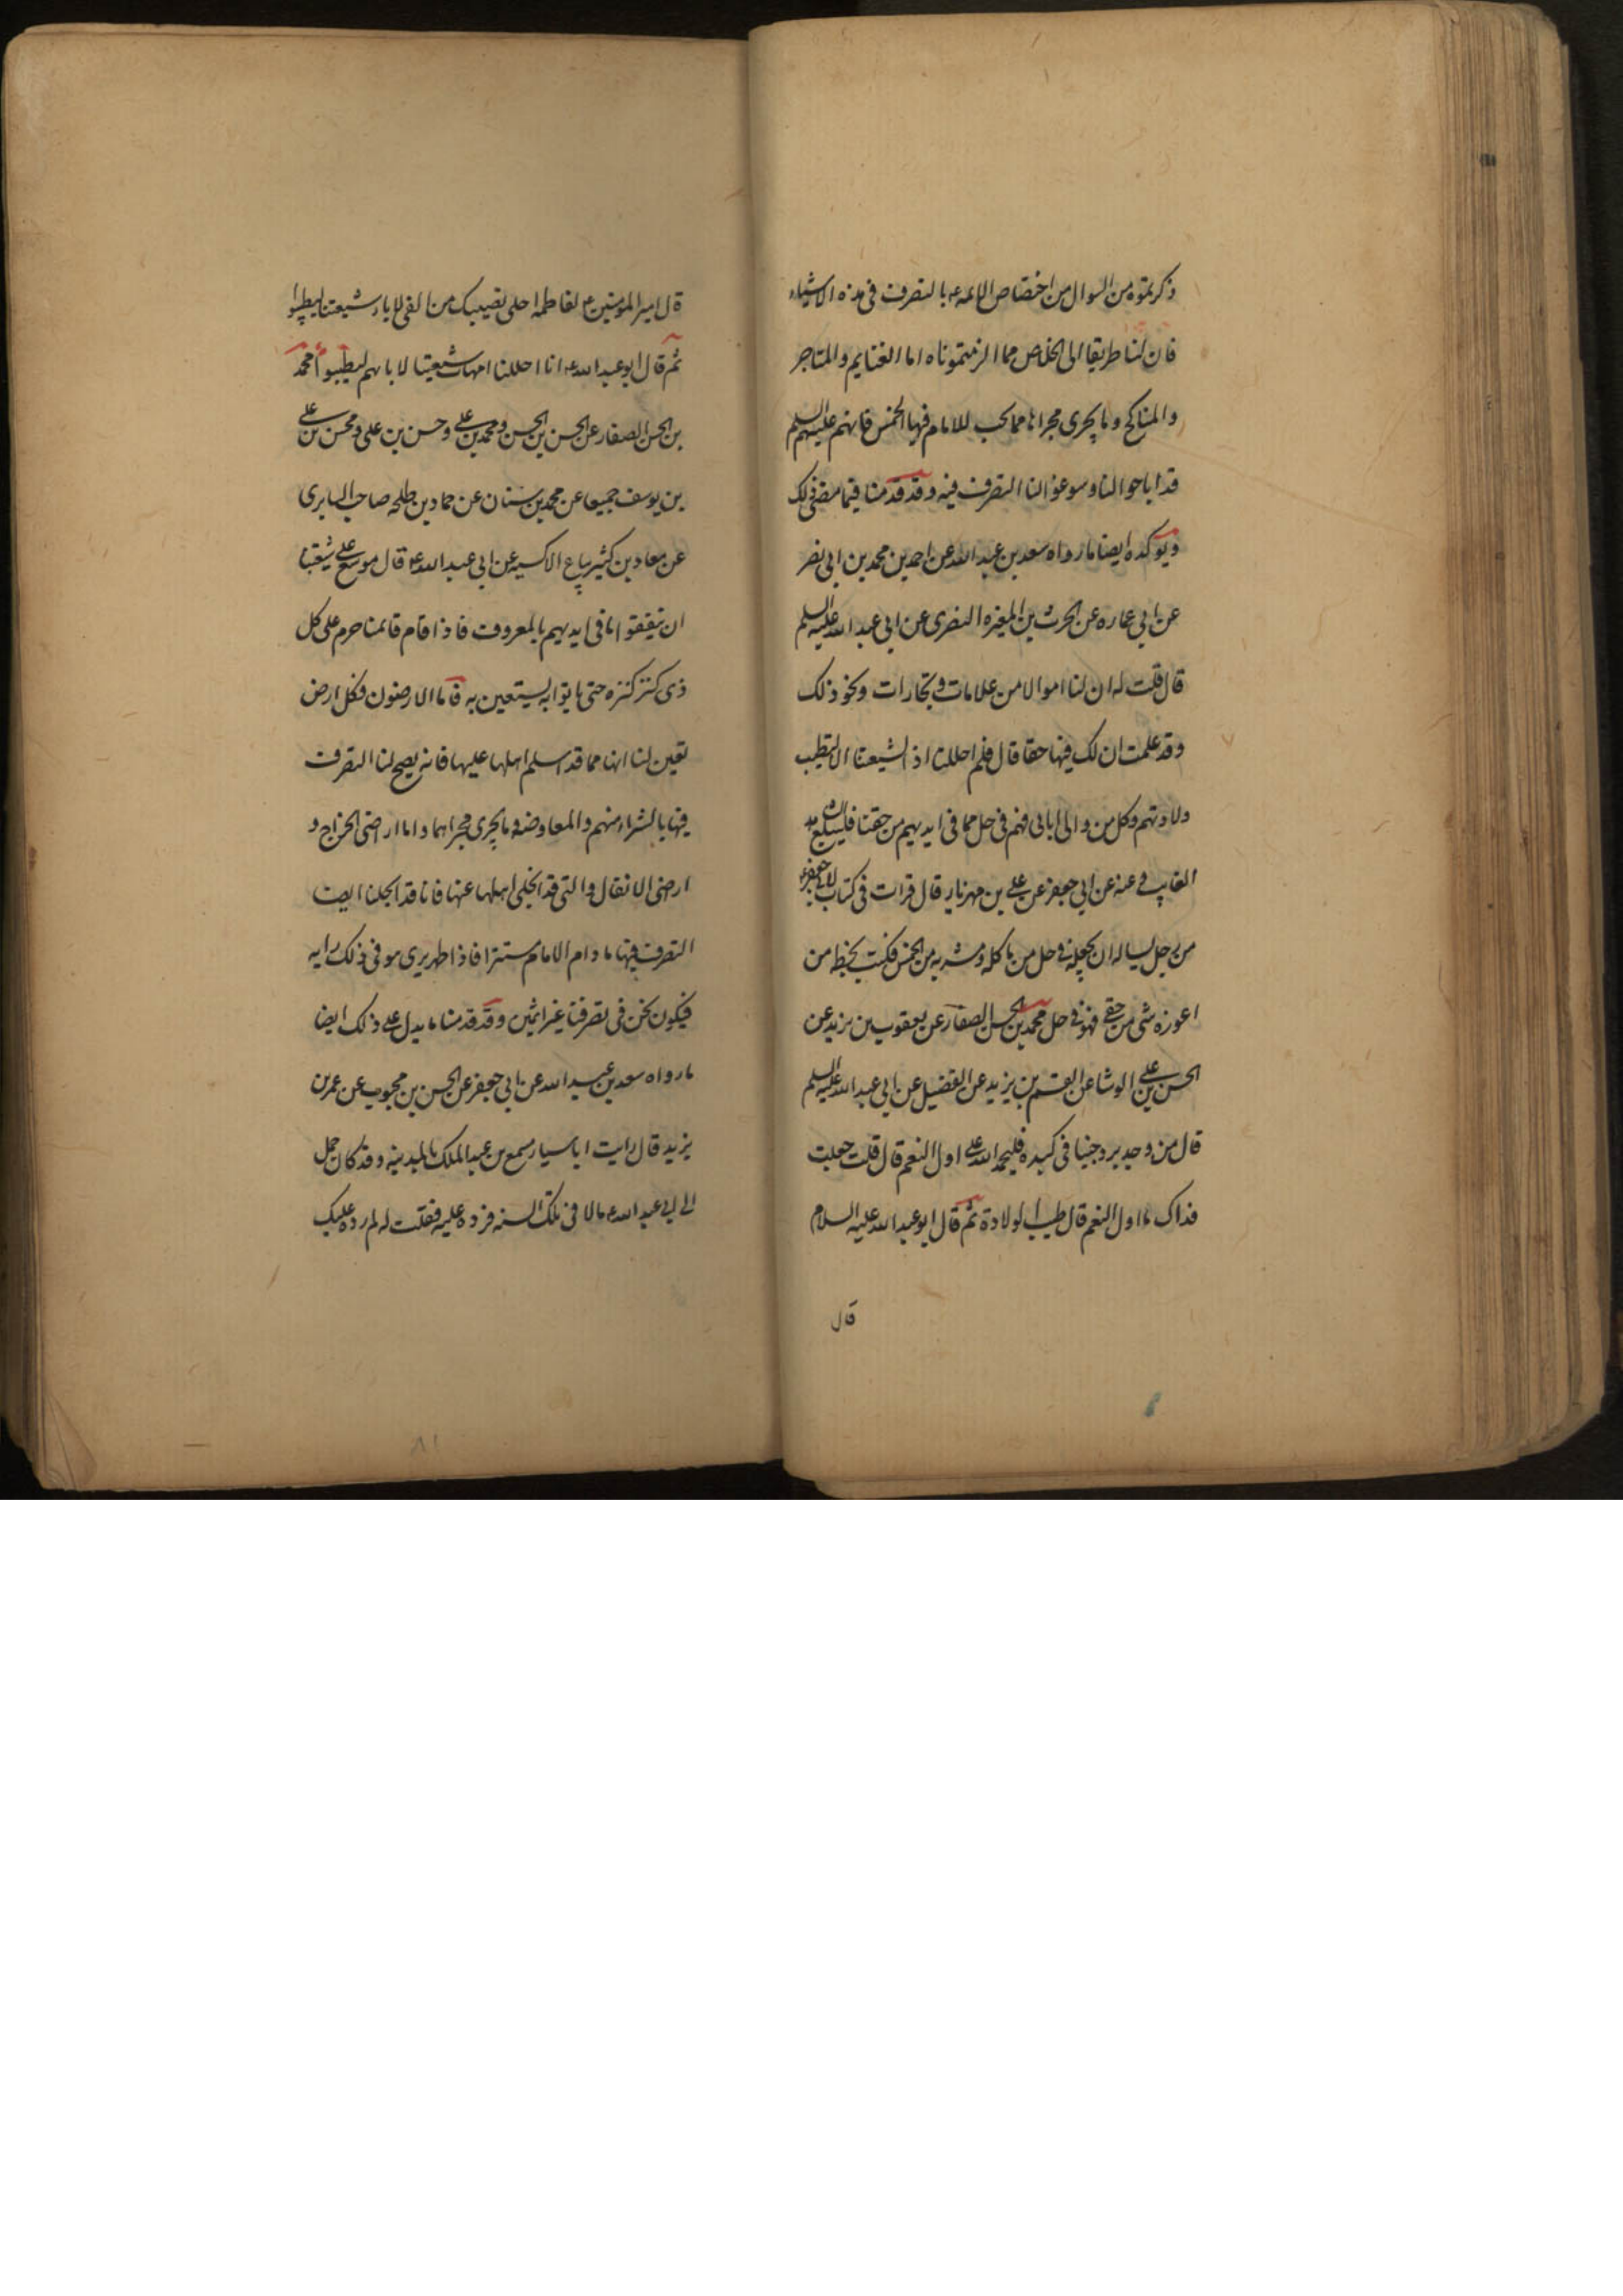 ذكرتموه من السوال من اختصاص الائمه ع بالتصرف فى هذه الاشياء
فان لنا طريقا الى الخلاص مما الزمتموناه اما الغنايم والمتاجر
والمناكح وما يجرى مجراها مما يجب للامام فيها الخمس فانهم عليهم السلم
قد اباحوا لنا وسوغوا لنا التصرف فيه وقد قدمنا فيما مضى ذلك
ويوكده ايضا ما رواه سعد بن عبد الله عن احمد بن محمد بن ابى نصر
عن ابي عماره عن الحرث بن المغيره النصرى عن ابى عبد الله عليه السلم
قال قلت له ان لنا اموالا من علامات وتجارات ونحو ذلك
وقد علمت ان لك فيها حقا قال فلم احللنا اذ الشيعتنا الا لتطيب
ولادتهم وكل من والى ابائى فهم فى حل مما فى ايديهم من حقنا فليبلغ الشاهد
الغايب وعنه عن ابي جعفر عن علي بن مهزيار قال قرات فى كتاب لابى جعفر ع
من رجل يساله ان يجعله فى حل من ماكله ومشربه من الخمس فكتب بخطه من
اعوزه شى من حقى فهو فى حل محمد بن الحسن الصفار عن يعقوب بن يزيد عن
الحسن بن علي الوشا عن القسم بن يزيد عن الفضيل عن ابي عبد الله عليه السلم
قال من وجد برد حبنا فى كبده فليحمد الله على اول النعم قال قلت جعلت
فداك ما اول النعم قال طيب الولادة ثم قال ابو عبد الله عليه السلام
قال
قال امير المومنين ع لفاطمه احلى نصيبك من الفى لاباء شيعتنا ليطيبوا
ثم قال ابو عبد الله ع انا احللنا امهات شيعتنا لابائهم ليطيبوا محمد
بن الحسن الصفار عن الحسن بن الحسن ومحمد بن علي وحسن بن على ومحسن بن علي
بن يوسف جميعا عن محمد بن سنان عن حماد بن طلحه صاحب السابرى
عن معاد بن كثير بياع الاكسيه عن ابى عبد الله ع قال موسع على شيعتنا
ان ينفقوا مما فى ايديهم بالمعروف فاذا قام قائمنا حرم على كل
ذى كنز كنزه حتى ياتوا به يستعين به فاما الارضون فكل ارض
تعين لنا انها مما قد اسلم اهلها عليها فانه يصح لنا التصرف
فيها بالشراء منهم والمعاوضه وما يجرى مجراهما واما اراضى الخراج و
اراضى الانفال والتى قد انجلى اهلها عنها فانا قد ابحنا ايضا
التصرف فيها ما دام الامام مستترا فاذا ظهر يرى هو فى ذلك رايه
فيكون نحن فى تصرفنا غير اثمين وقد قدمنا ما يدل على ذلك ايضا
ما رواه سعد بن عبد الله عن ابي جعفر عن الحسن بن محبوب عن عمر بن
يزيد قال رايت ابا سيار مسمع بن عبد الملك بالمدينه وقد كان حمل
الى ابي عبد الله ع مالا فى تلك السنه فرده عليه فقلت له لم رده عليك